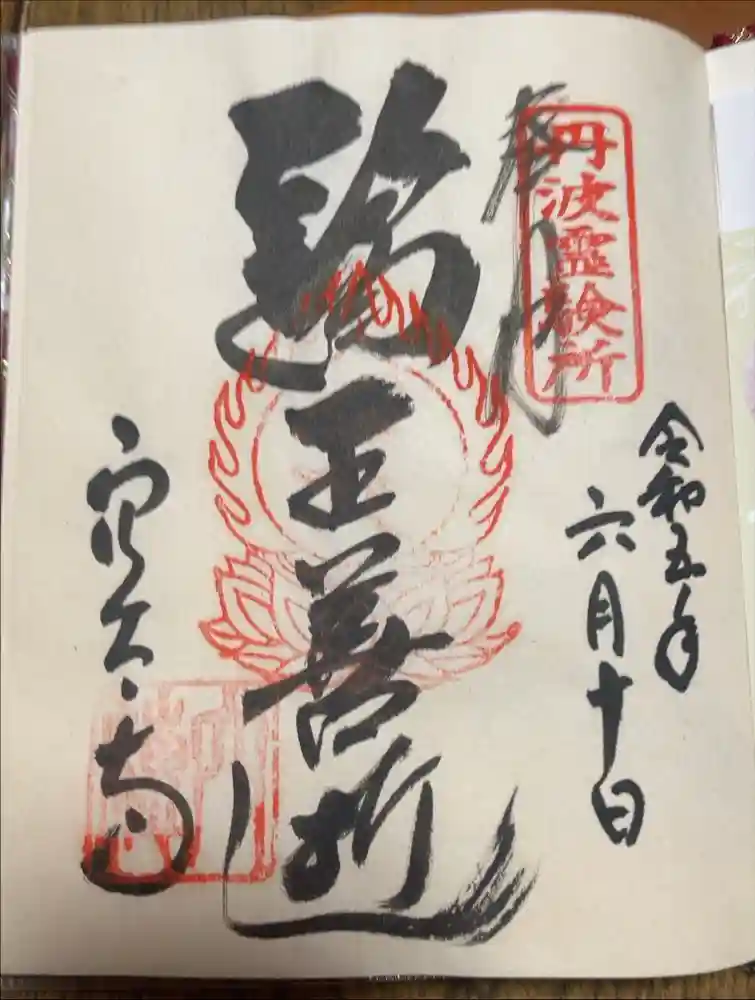 丹波霊験所
奉拝
令和五年
六月十日
王善逝
穴太寺